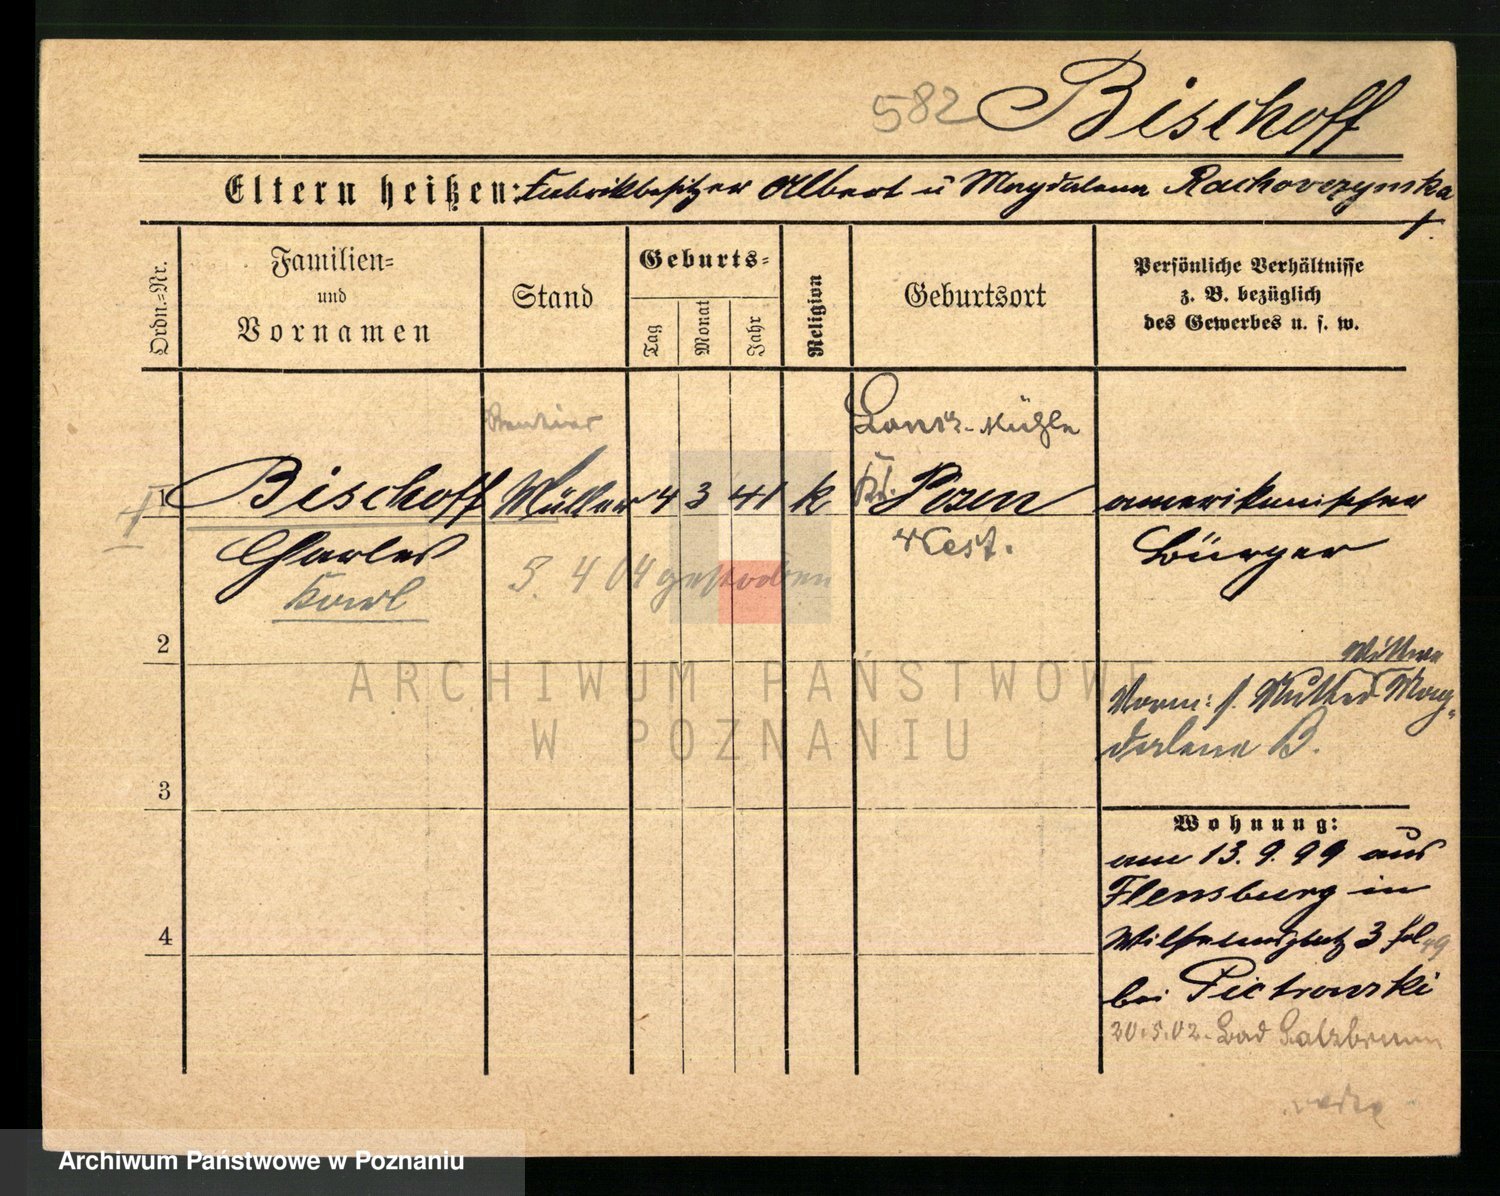 582 Bischoff
Eltern heißen: Fabrikbesitzer Albert u Magdalena Rachovczynska
†
Ordn.=Nr.
Familien=
und
Vornamen
Stand
Geburts=
Tag
Monat
Jahr
Religion
Geburtsort
Persönliche Verhältnisse
z. B. bezüglich
des Gewerbes u. s. w.
Rentier
Mühle
1 Bischoff Müller 4 3 41 k Posen amerikanischer
Charles West. Bürger
Karl
5. 4 04 gestorben
2
Wittwe
Vorm: s. Mutter Mag-
dalena B.
3
Wohnung:
am 13. 9. 99 aus
Flensburg in
4
3
bei Pietrowski
20.5.02. Bad Salzbrunn
ARCHIWUM PAŃSTWOWE
W POZNANIU
Archiwum Państwowe w Poznaniu